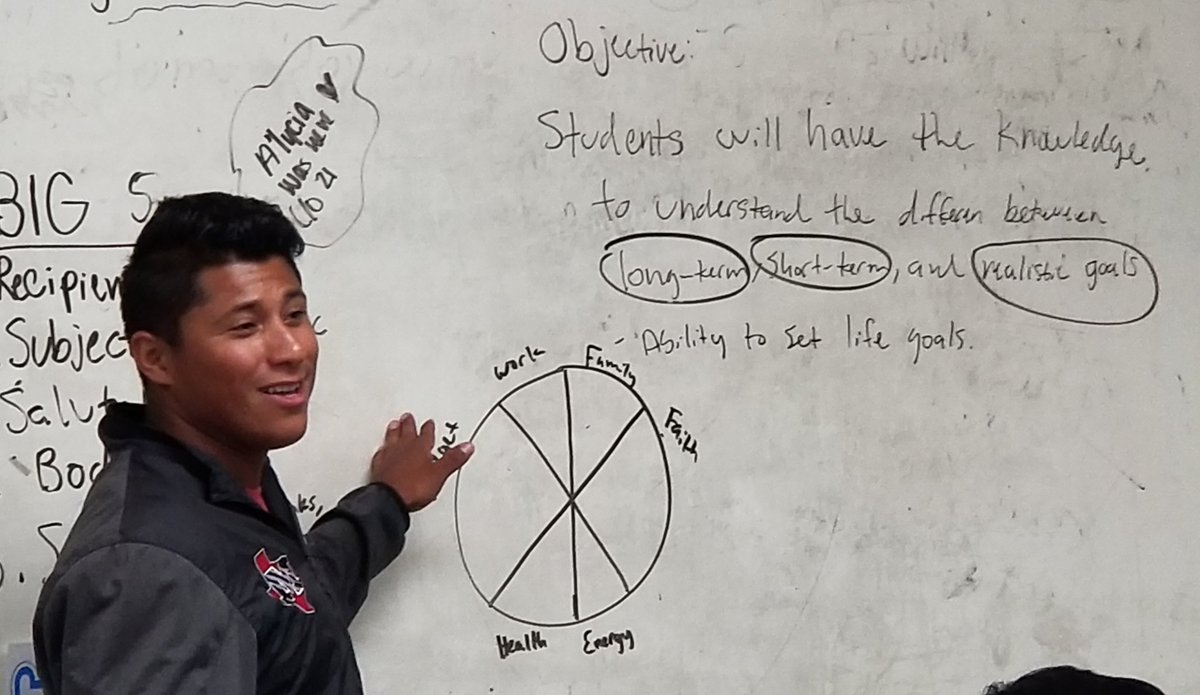 BIG 5
Recipien
Subjec
Salut
Bod
Allycia
was here
c/o 21
Objective:
Students will have the Knowledge
to understand the differen between
long-term, short-term, and realistic goals
- Ability to set life goals.
work
Family
Faith
Health
Energy